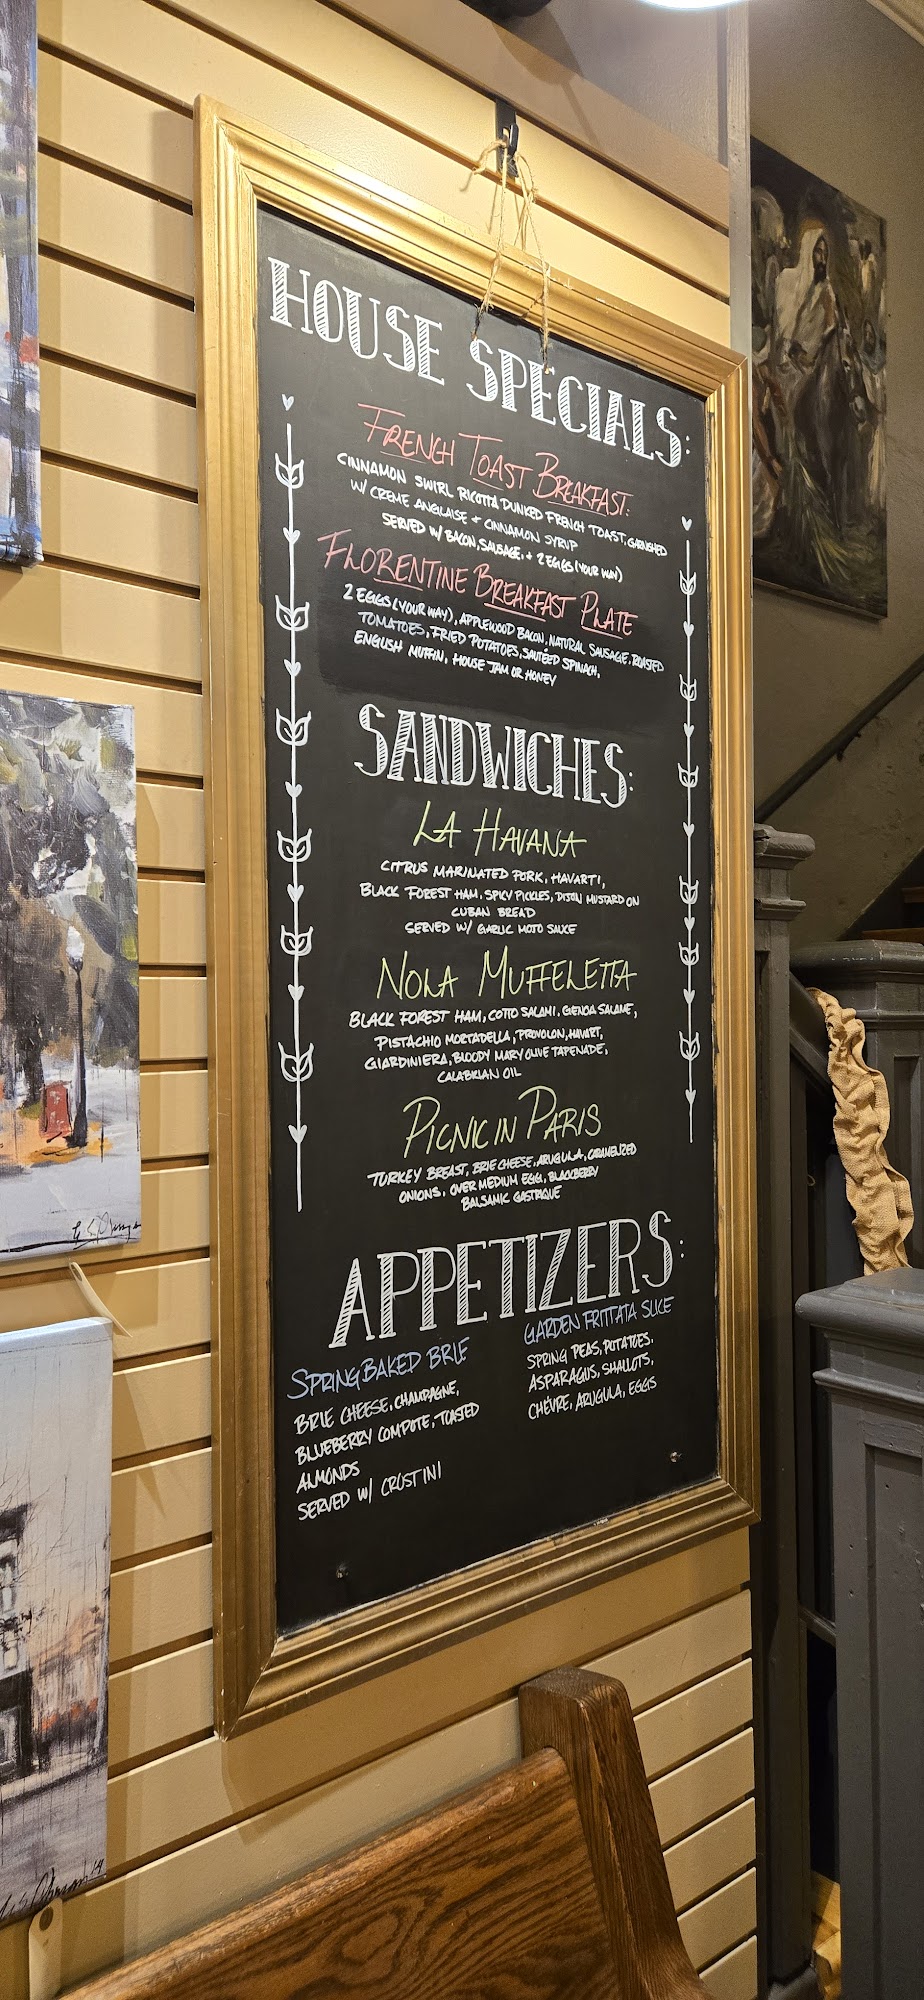 HOUSE SPECIALS:
FRENCH TOAST BREAKFAST:
CINNAMON SWIRL RICOTTA DUNKED FRENCH TOAST, GARNISHED
W/ CREME ANGLAISE + CINNAMON SYRUP
SERVED W/ BACON, SAUSAGE, + 2 EGGS (YOUR WAY)
FLORENTINE BREAKFAST PLATE
2 EGGS (YOUR WAY), APPLEWOOD BACON, NATURAL SAUSAGE, ROASTED
TOMATOES, FRIED POTATOES, SAUTÉED SPINACH,
ENGLISH MUFFIN, HOUSE JAM OR HONEY
SANDWICHES:
LA HAVANA
CITRUS MARINATED PORK, HAVARTI,
BLACK FOREST HAM, SPICY PICKLES, DIJON MUSTARD ON
CUBAN BREAD
SERVED W/ GARLIC MOJO SAUCE
NOLA MUFFELETTA
BLACK FOREST HAM, COTTO SALAMI, GENOA SALAME,
PISTACHIO MORTADELLA, PROVOLON, HAVART,
GIARDINIERA, BLOODY MARY OLIVE TAPENADE,
CALABRIAN OIL
PICNIC IN PARIS
TURKEY BREAST, BRIE CHEESE, ARUGULA, CARAMELIZED
ONIONS, OVER MEDIUM EGG, BLACKBERRY
BALSAMIC GASTRIQUE
APPETIZERS:
SPRING BAKED BRIE
BRIE CHEESE, CHAMPAGNE,
BLUEBERRY COMPOTE, TOASTED
ALMONDS
SERVED W/ CROSTINI
GARDEN FRITTATA SLICE
SPRING PEAS, POTATOES,
ASPARAGUS, SHALLOTS,
CHÈVRE, ARUGULA, EGGS